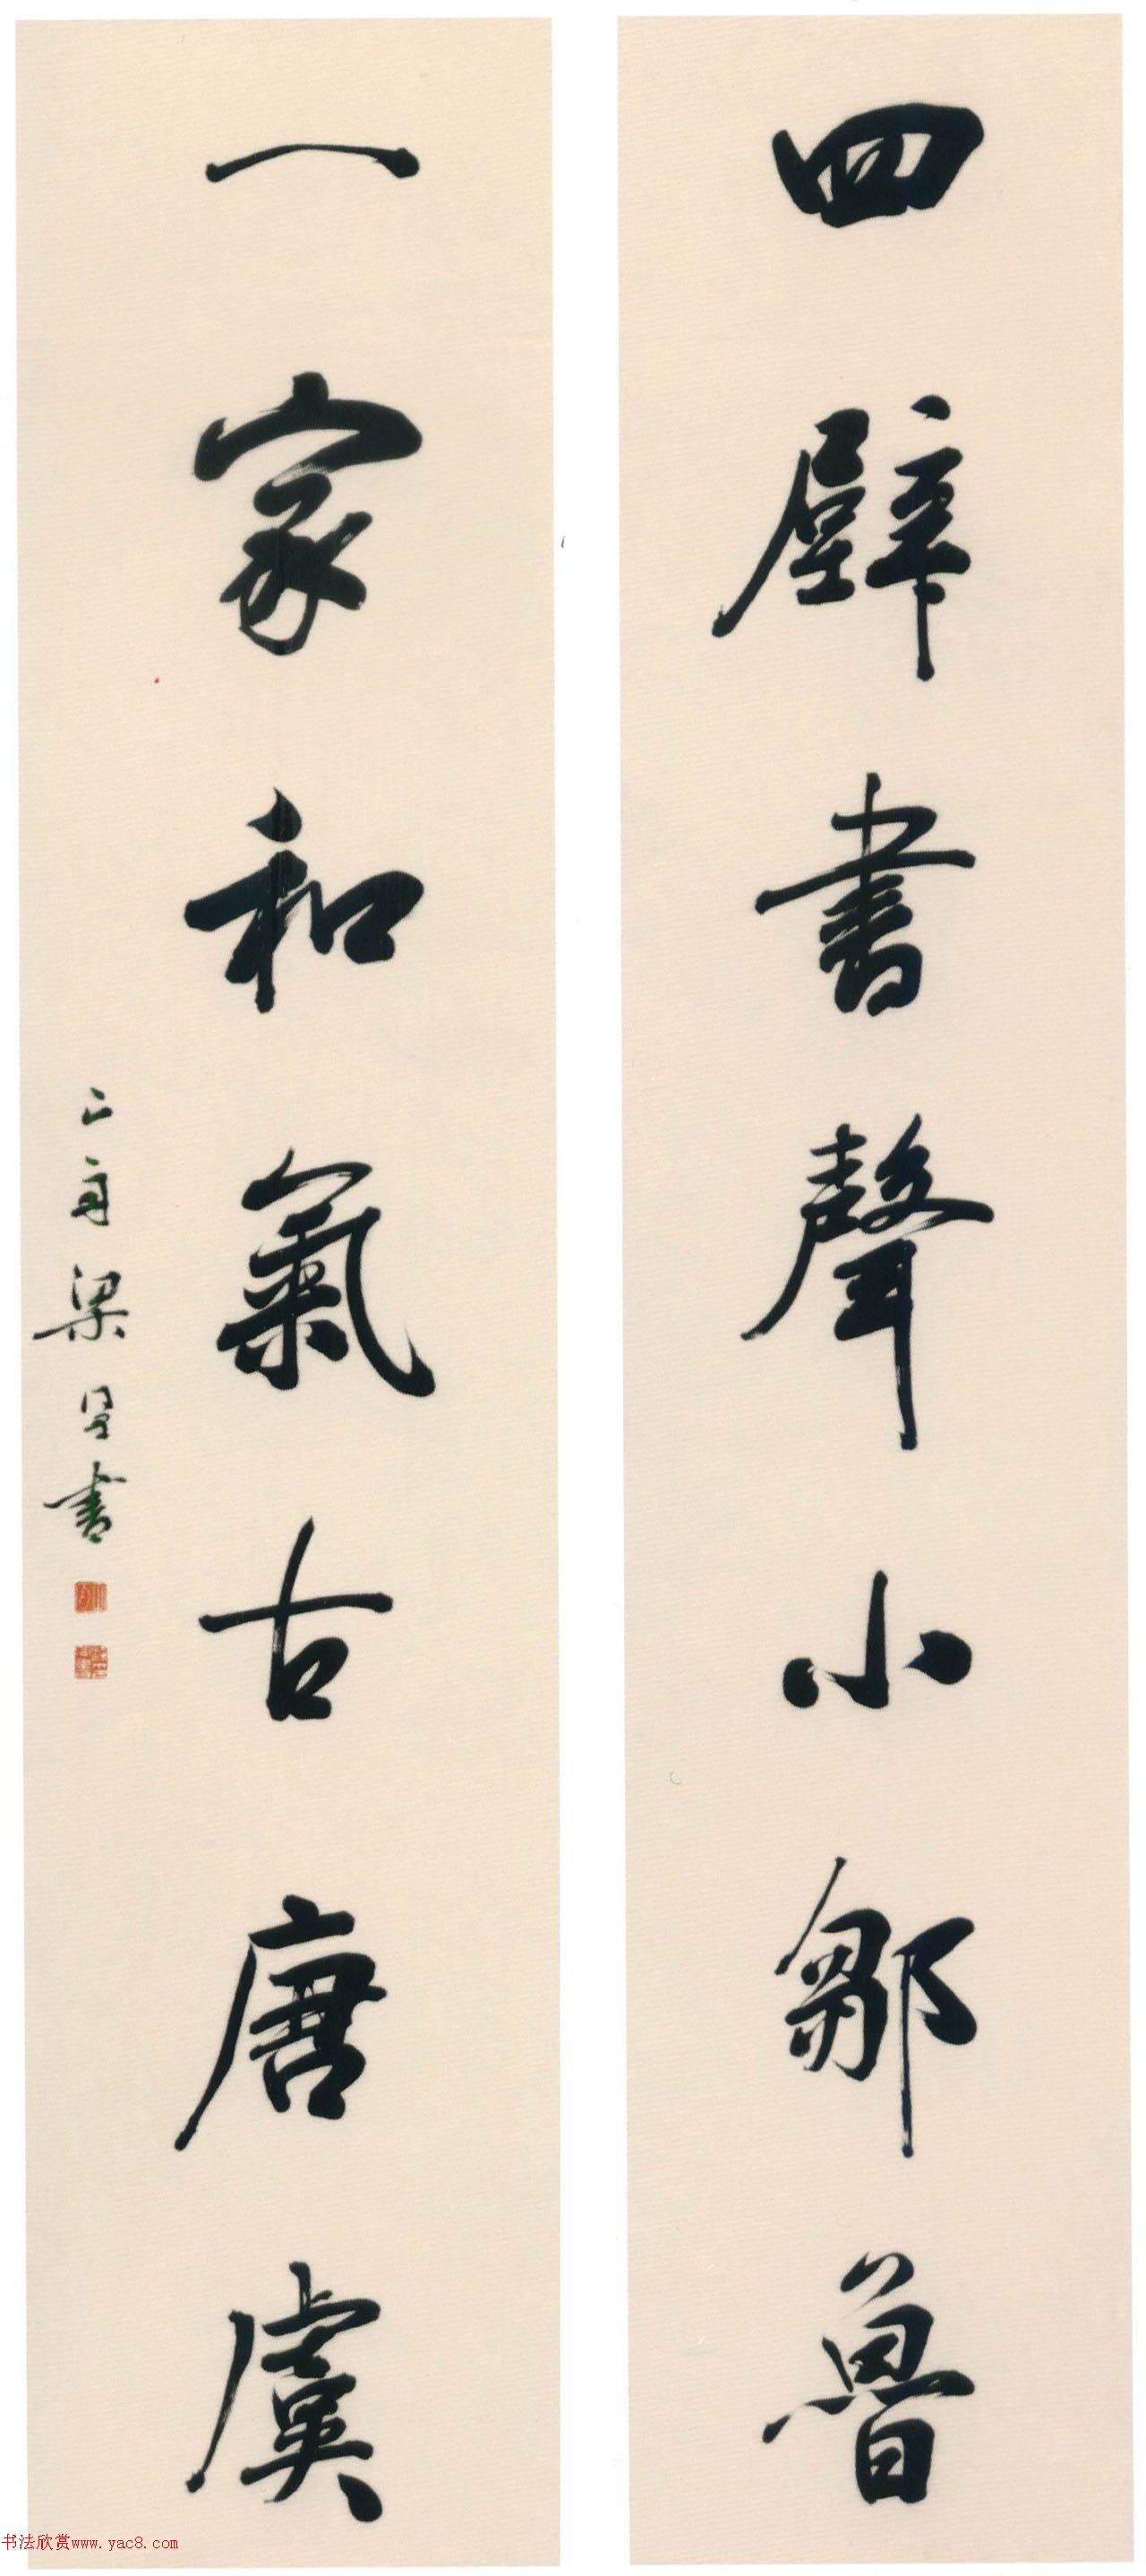 四壁書聲小鄒魯
一家和氣古唐虞
二舟梁㫤書
书法欣赏www.yac8.com